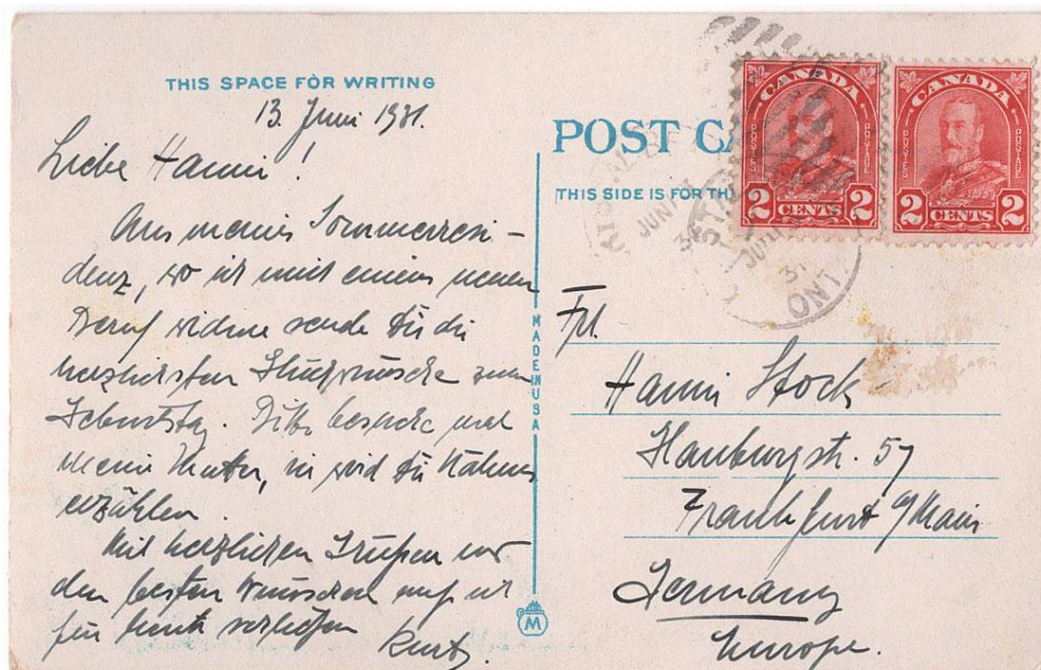 THIS SPACE FOR WRITING
13. Juni 1931.
Liebe Hanni!
Aus meiner Sommerresi-
denz, wo ich mich einem neuen
Beruf widme sende Dir die
herzlichsten Glückwünsche zum
Geburtstag. Bitte besuche mal
meine Mutter, sie wird Dir Näheres
erzählen.
Mit herzlichen Grüßen und
den besten Wünschen muß ich
für heute schließen
Kurt.
POST CA
THIS SIDE IS FOR TH
CANADA
POSTES POSTAGE
2 CENTS 2
CANADA
POSTES POSTAGE
2 CENTS 2
JUN
31
ONT
MADE IN USA
M
Frl.
Hanni Stock
57
Frankfurt a/Main
Germany
Europe.